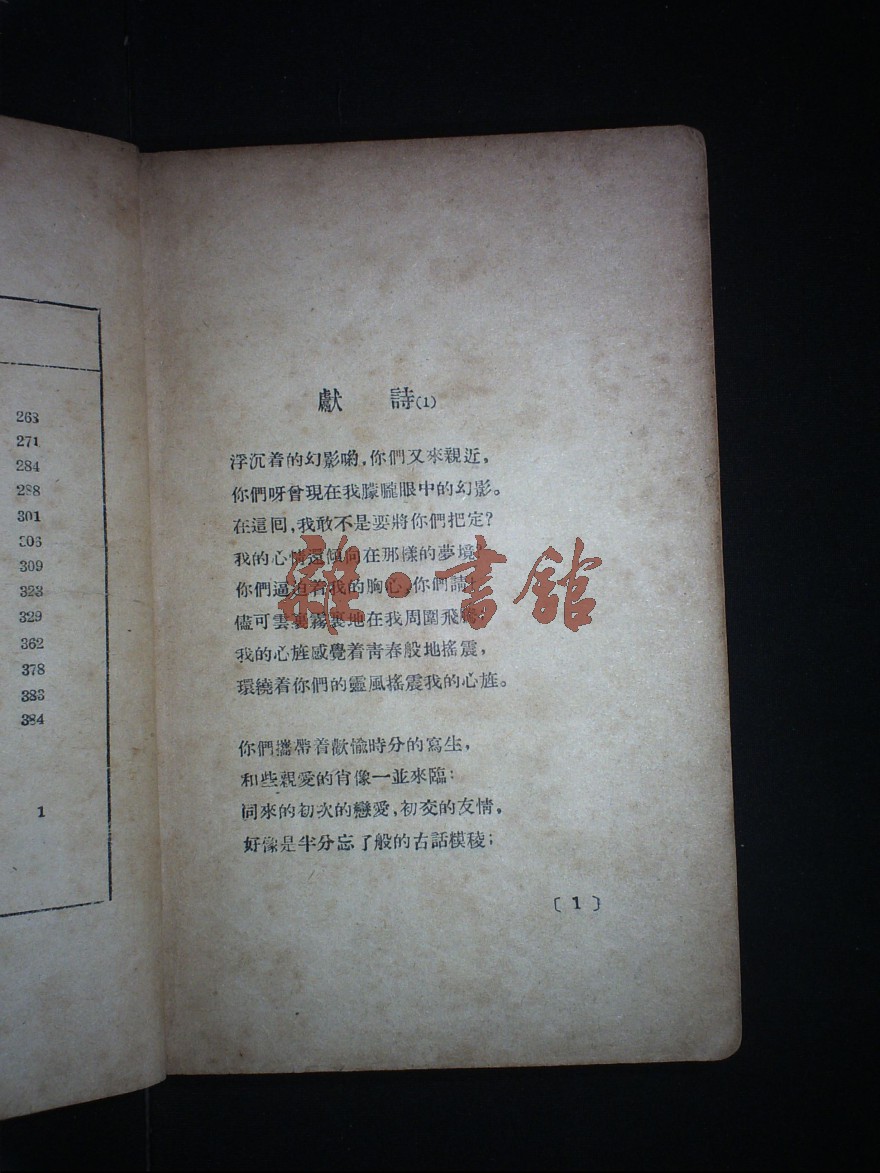 263
271
284
288
301
306
309
323
329
362
378
383
384
1
獻 詩(1)
浮沉着的幻影喲,你們又來親近,
你們呀曾現在我朦朧眼中的幻影。
在這囘,我敢不是要將你們把定?
我的心情還傾向在那樣的夢境?
你們逼迫着我的胸心,你們請!
儘可雲裏霧裏地在我周圍飛騰;
我的心旌感覺着靑春般地搖震,
環繞着你們的靈風搖震我的心旌。
你們攜帶着歡愉時分的寫生,
和些親愛的肖像一並來臨;
同來的初次的戀愛,初交的友情,
好像是半分忘了般的古話模稜;
〔 1 〕
雜·書舘